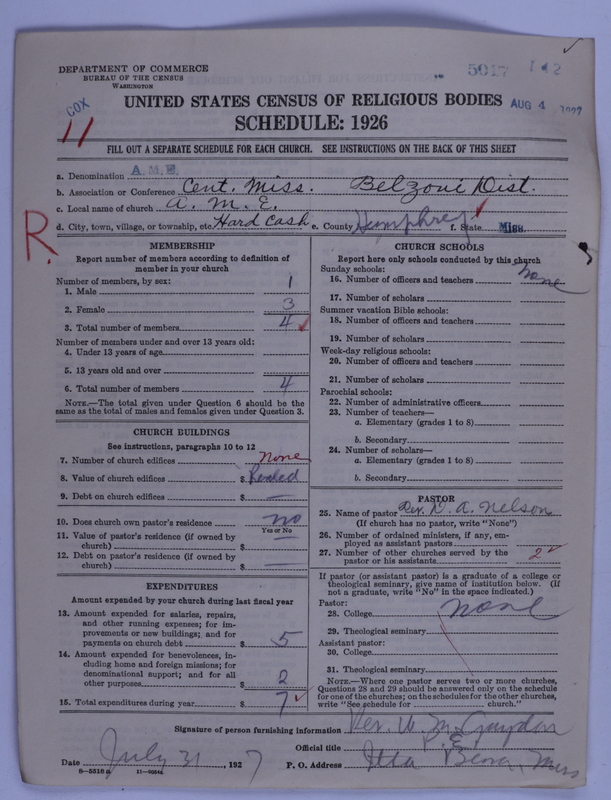 DEPARTMENT OF COMMERCE
BUREAU OF THE CENSUS
WASHINGTON
5917 142
COX
11
UNITED STATES CENSUS OF RELIGIOUS BODIES
AUG 4 1927
SCHEDULE: 1926
FILL OUT A SEPARATE SCHEDULE FOR EACH CHURCH. SEE INSTRUCTIONS ON THE BACK OF THIS SHEET
a. Denomination A.M.E.
b. Association or Conference Cent. Miss. Belzoni Dist.
c. Local name of church A. M. E.
d. City, town, village, or township, etc. Hard Cash e. County Humphrey f. State Miss.
R.
MEMBERSHIP
Report number of members according to definition of member in your church
Number of members, by sex:
1. Male 1
2. Female 3
3. Total number of members 4
Number of members under and over 13 years old:
4. Under 13 years of age
5. 13 years old and over
6. Total number of members 4
NOTE.—The total given under Question 6 should be the same as the total of males and females given under Question 3.
CHURCH BUILDINGS
See instructions, paragraphs 10 to 12
7. Number of church edifices None
8. Value of church edifices $
9. Debt on church edifices $ —
10. Does church own pastor's residence no
Yes or No
11. Value of pastor's residence (if owned by church) $ —
12. Debt on pastor's residence (if owned by church) $ —
EXPENDITURES
Amount expended by your church during last fiscal year
13. Amount expended for salaries, repairs, and other running expenses; for improvements or new buildings; and for payments on church debt $ 5
14. Amount expended for benevolences, including home and foreign missions; for denominational support; and for all other purposes $ 2
15. Total expenditures during year $ 7
CHURCH SCHOOLS
Report here only schools conducted by this church
Sunday schools:
16. Number of officers and teachers none
17. Number of scholars
Summer vacation Bible schools:
18. Number of officers and teachers
19. Number of scholars
Week-day religious schools:
20. Number of officers and teachers
21. Number of scholars
Parochial schools:
22. Number of administrative officers
23. Number of teachers—
a. Elementary (grades 1 to 8)
b. Secondary
24. Number of scholars—
a. Elementary (grades 1 to 8)
b. Secondary
PASTOR
25. Name of pastor Rev. D. A. Nelson
(If church has no pastor, write "None")
26. Number of ordained ministers, if any, employed as assistant pastors
27. Number of other churches served by the pastor or his assistants 2
If pastor (or assistant pastor) is a graduate of a college or theological seminary, give name of institution below. (If not a graduate, write "No" in the space indicated.)
Pastor:
28. College none
29. Theological seminary
Assistant pastor:
30. College
31. Theological seminary
NOTE.—Where one pastor serves two or more churches, Questions 28 and 29 should be answered only on the schedule for one of the churches; on the schedules for the other churches, write "See schedule for church."
Signature of person furnishing information Rev. W. M. Graydon
Official title P. E.
Date July 31, 1927 P. O. Address Itta Bena, Miss
8—5518a 11—9024a